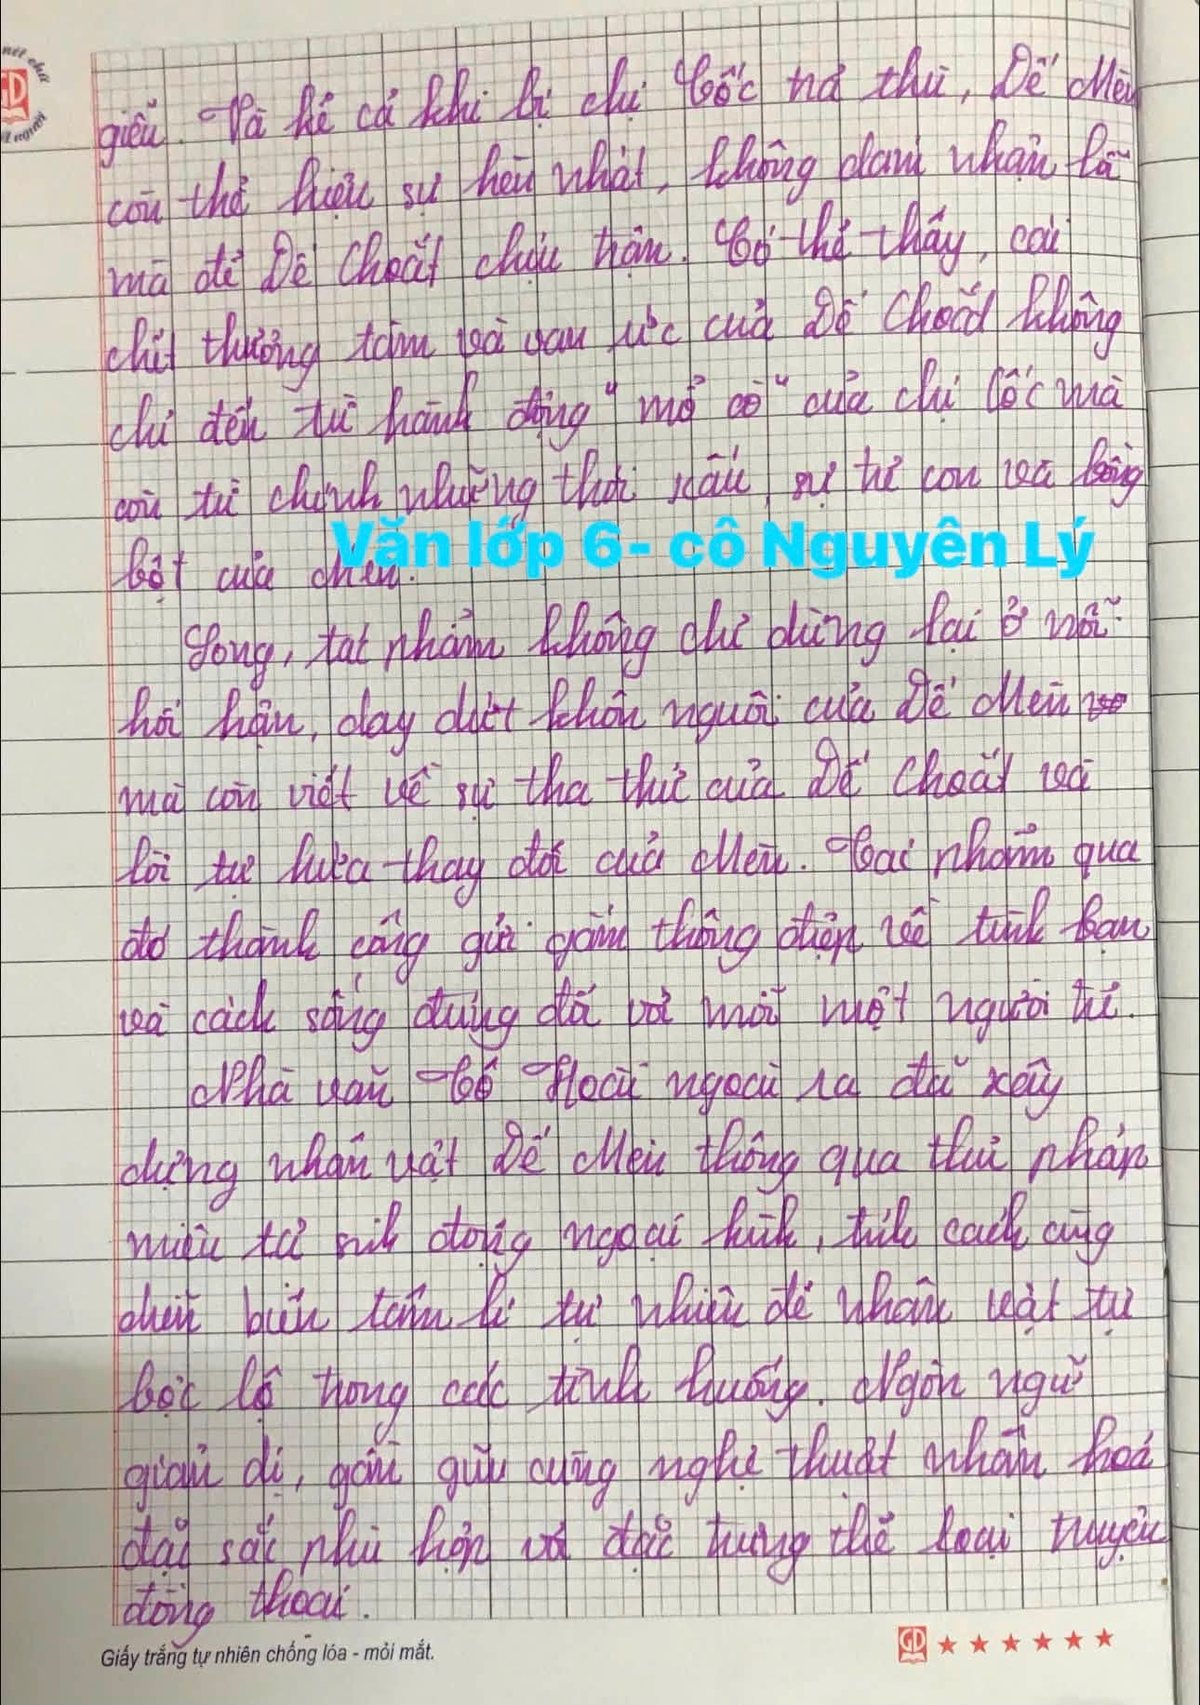 giễu. Và kể cả khi bị chị Cốc trả thù, Dế Mèn
còn thể hiện sự hèn nhát, không dám nhận lỗi
mà để Dế Choắt chịu trận. Có thể thấy, cái
chết thương tâm và oan ức của Dế Choắt không
chỉ đến từ hành động "mổ cò" của chị Cốc mà
còn từ chính những thói xấu, sự tự con và bồng
bột của Mèn.
Văn lớp 6- cô Nguyên Lý
Song, tác phẩm không chỉ dừng lại ở nỗi
hối hận, day dứt khôn nguôi của Dế Mèn
mà còn viết về sự tha thứ của Dế Choắt và
lời tự hứa thay đổi của Mèn. Tác phẩm qua
đó thành công gửi gắm thông điệp về tình bạn
và cách sống đúng đắn với mỗi một người trẻ.
Nhà văn Tô Hoài ngoài ra đã xây
dựng nhân vật Dế Mèn thông qua thủ pháp
miêu tả sinh động ngoại hình, tính cách cùng
diễn biến tâm lí tự nhiên để nhân vật tự
bộc lộ trong các tình huống. Ngôn ngữ
giản dị, gần gũi cùng nghệ thuật nhân hoá
đặc sắc phù hợp với đặc trưng thể loại truyện
đồng thoại.
Giấy trắng tự nhiên chống lóa - mỏi mắt.
GD